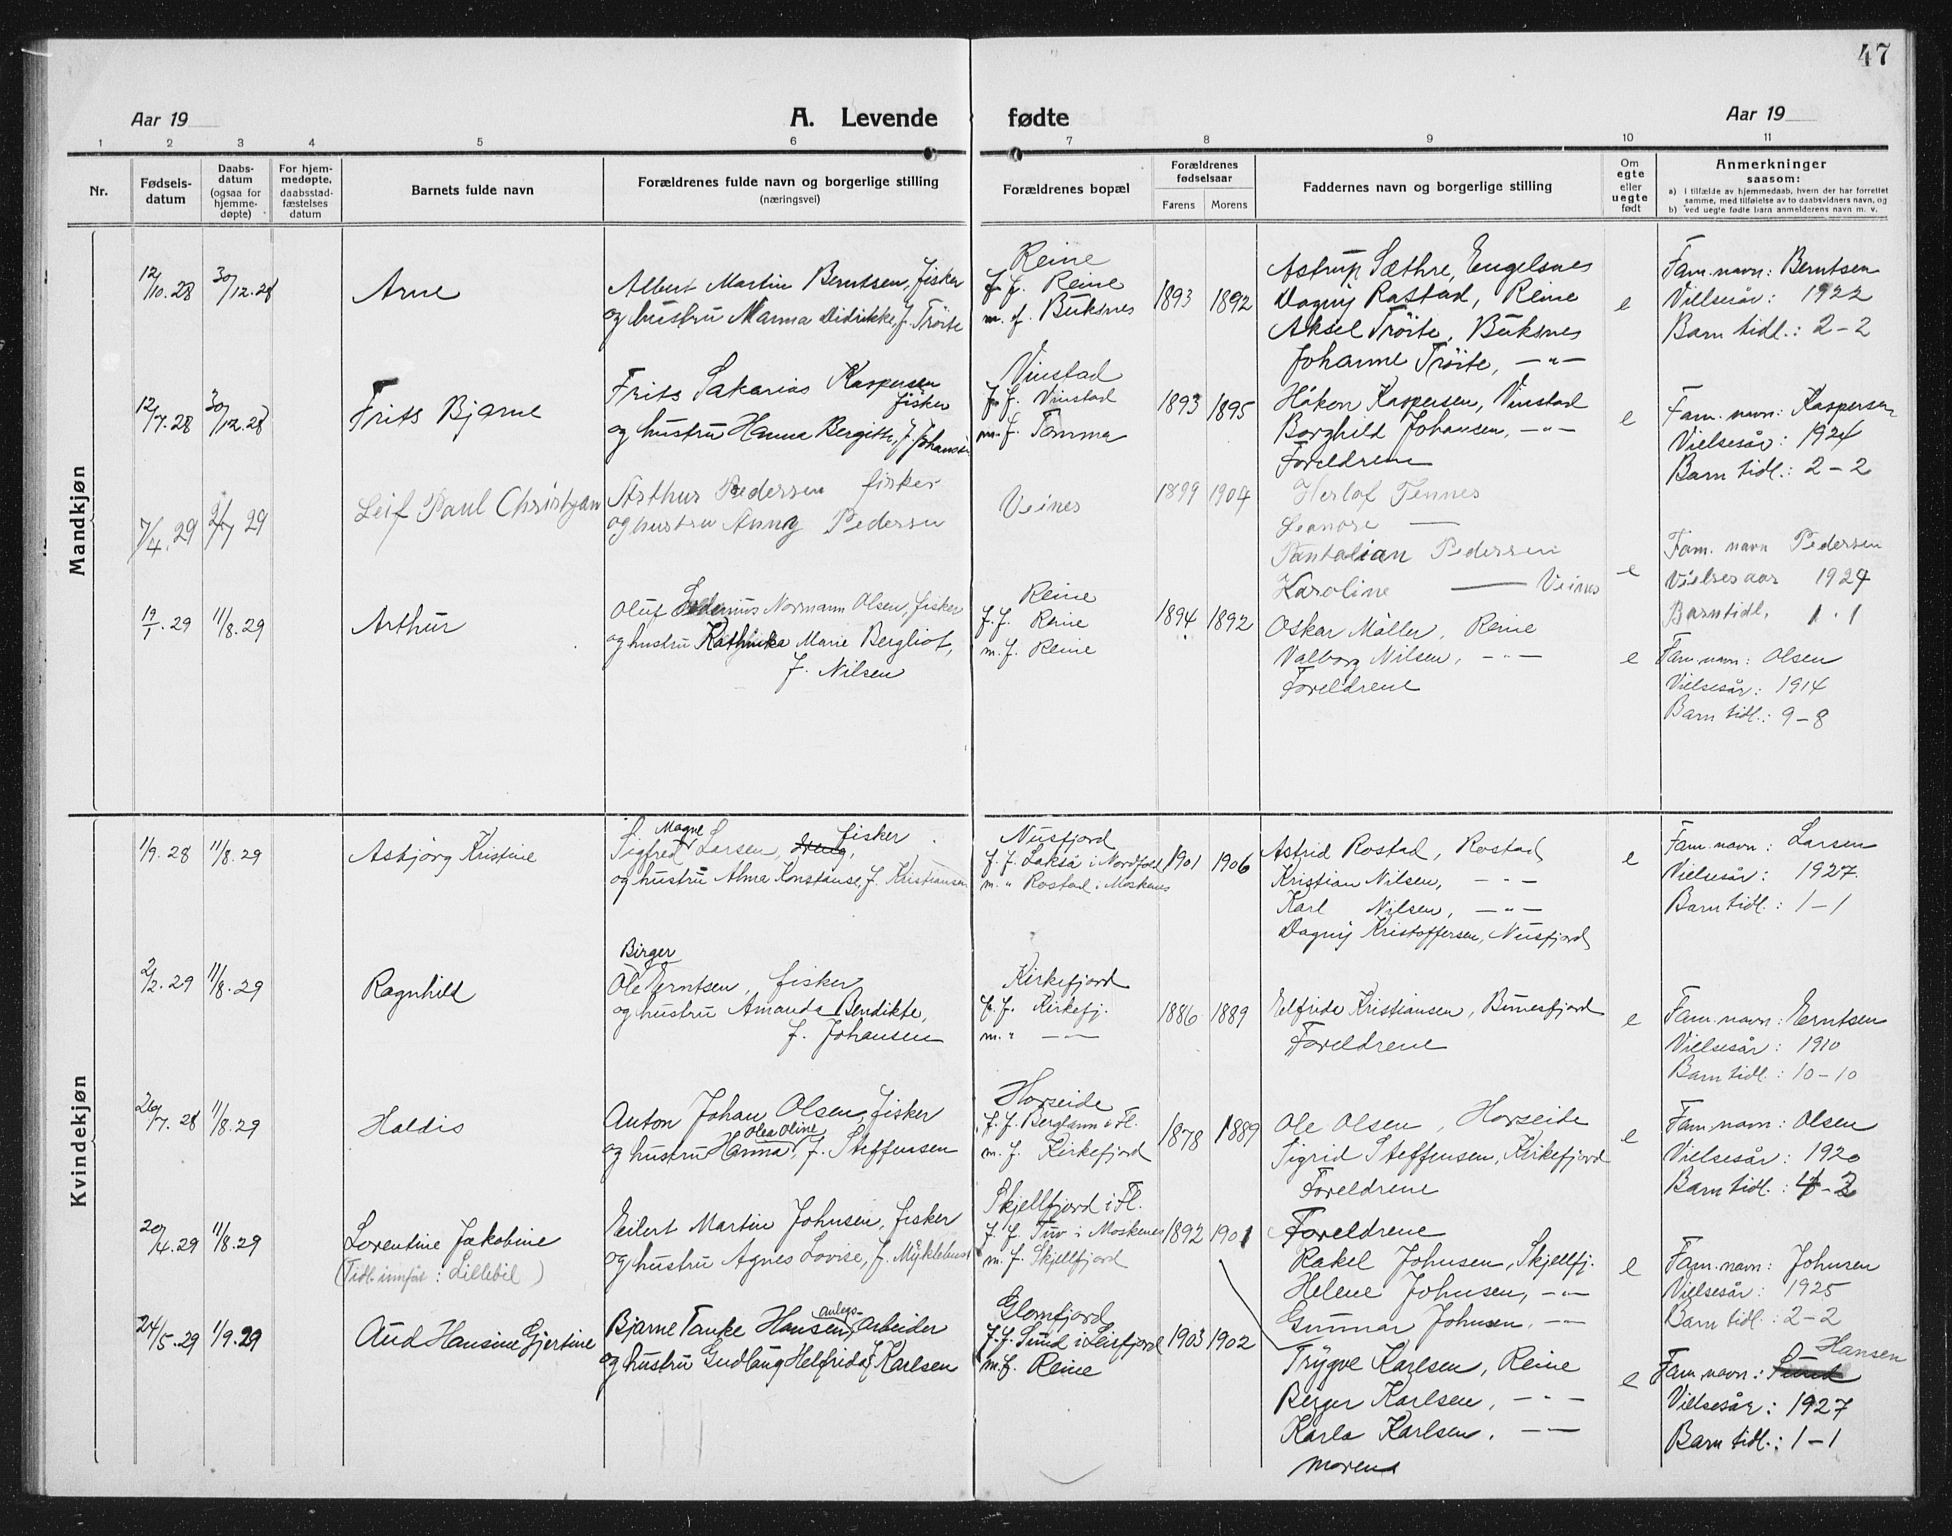 47
Aar 19
A. Levende fødte
Aar 19
1 2 3 4 5 6 7 8 9 10 11
Nr.
Fødsels-
datum
Daabs-
datum
(ogsaa for
hjemme-
døpte)
For hjem-
medøpte,
daabsstad-
fæstelses
datum
Barnets fulde navn
Forældrenes fulde navn og borgerlige stilling
(næringsvei)
Forældrenes bopæl
Forældrenes
fødselsaar
Farens Morens
Faddernes navn og borgerlige stilling
Om
egte
eller
uegte
født
Anmerkninger
saasom:
a) i tilfælde av hjemmedaab, hvem der har forrettet
samme, med tilføielse av to daabsvidners navn, og
b) ved uegte fødte barn anmelderens navn m. v.
Mandkjøn
12/10.28 30/12.28
Arne
Albert Martin Berntsen, fisker
og hustru Marma Didrikke, f. Trøite
Reine
f. f. Reine
m. f. Buksnes
1893 1892
Astrup Sæthre, Engelsnes
Dagny Rostad, Reine
Aksel Trøite, Buksnes
Johanne Trøite, —"—
e
Fam. navn: Berntsen
Vielsesår: 1922
Barn tidl.: 2-2
12/7.28 30/12.28
Frits Bjarne
Frits Sakarias Kaspersen
fisker
og hustru Hanna Bergitte, f. Johansen
Vinstad
f. f. Vinstad
m. f. Tomma
1893 1895
Håkon Kaspersen, Vinstad
Borghild Johansen, —"—
Foreldrene
e
Fam. navn: Kaspersen
Vielsesår: 1924
Barn tidl.: 2-2
7/4.29 2/7 29
Leif Paul Christyan
Arthur Pedersen fisker
og hustru Anny Pedersen
Veines
1899 1904
Herlof Tennes
Leanore —
Pantalian Pedersen
Karoline — Veines
e
Fam. navn Pedersen
Vielsesaar 1927
Barn tidl. 1.1
19/1.29 11/8.29
Arthur
Oluf Normann Olsen, fisker
og hustru Kathinka Marie Bergliot,
f. Nilsen
Reine
f. f. Reine
m. f. Reine
1894 1892
Oskar Møller, Reine
Valborg Nilsen, —"—
Foreldrene
e
Fam. navn: Olsen
Vielsesår: 1914
Barn tidl.: 9-8
Kvindekjøn
1/9.28 11/8.29
Asbjørg Kristine
Magne fisker
Sigfred Larsen,
og hustru Alma Konstanse, f. Kristiansen
Nusfjord
f. f. Lakså i Nordfold
m. " Rostad i Moskenes
1901 1906
Astrid Rostad, Rostad
Kristian Nilsen, —"—
Karl Nilsen, —"—
Dagny Kristoffersen, Nusfjord
e
Fam. navn: Larsen
Vielsesår: 1927.
Barn tidl.: 1-1
2/2.29 11/8.29
Ragnhild
Birger
Ole Erntsen, fisker
og hustru Amanda Bendikte,
f. Johansen
Kirkefjord
f. f. Kirkefj.
m. " — —
1886 1889
Elfride Kristiansen, Bunesfjord
Foreldrene
e
Fam. navn: Erntsen
Vielsesår: 1910
Barn tidl.: 10-10
26/7.28 11/8.29
Haldis
Anton Johan Olsen, fisker
Olea Oline
og hustru Hanna, f. Steffensen
Horseide
f. f. Bergland i Fl.
m. f. Kirkefjord
1878 1889
Ole Olsen, Horseide
Sigrid Steffensen, Kirkefjord
Foreldrene
e
Fam. navn: Olsen
Vielsesår: 1920
Barn tidl.: 4-3
20/4.29 11/8.29
Lorentine Jakobine
(Tidl. innført: Lillebil)
Eilert Martin Johnsen, fisker
og hustru Agnes Lovise, f. Myklebust
Skjellfjord i Fl.
f. f. Tuv i Moskenes
m. f. Skjellfjord
1892 1901
Foreldrene
Rakel Johnsen, Skjellfj.
Helene Johnsen, —"—
Gunnar Johnsen, —"—
e
Fam. navn: Johnsen
Vielsesår: 1925
Barn tidl.: 2-2
24/5.29 1/9.29
Aud Hansine Gjertine
anlegs-
Bjarne Tanke Hansen, arbeider
og hustru Gudlaug Helfrida f. Karlsen
Glomfjord
f. f. Sund i Leisfjord
m. f. Reine
1903 1902
Trygve Karlsen, Reine
Berger Karlsen, —"—
Karla Karlsen, —"—
Morens
e
Hansen
Fam. navn: Sund
Vielsesår: 1927
Barn tidl.: 1-1